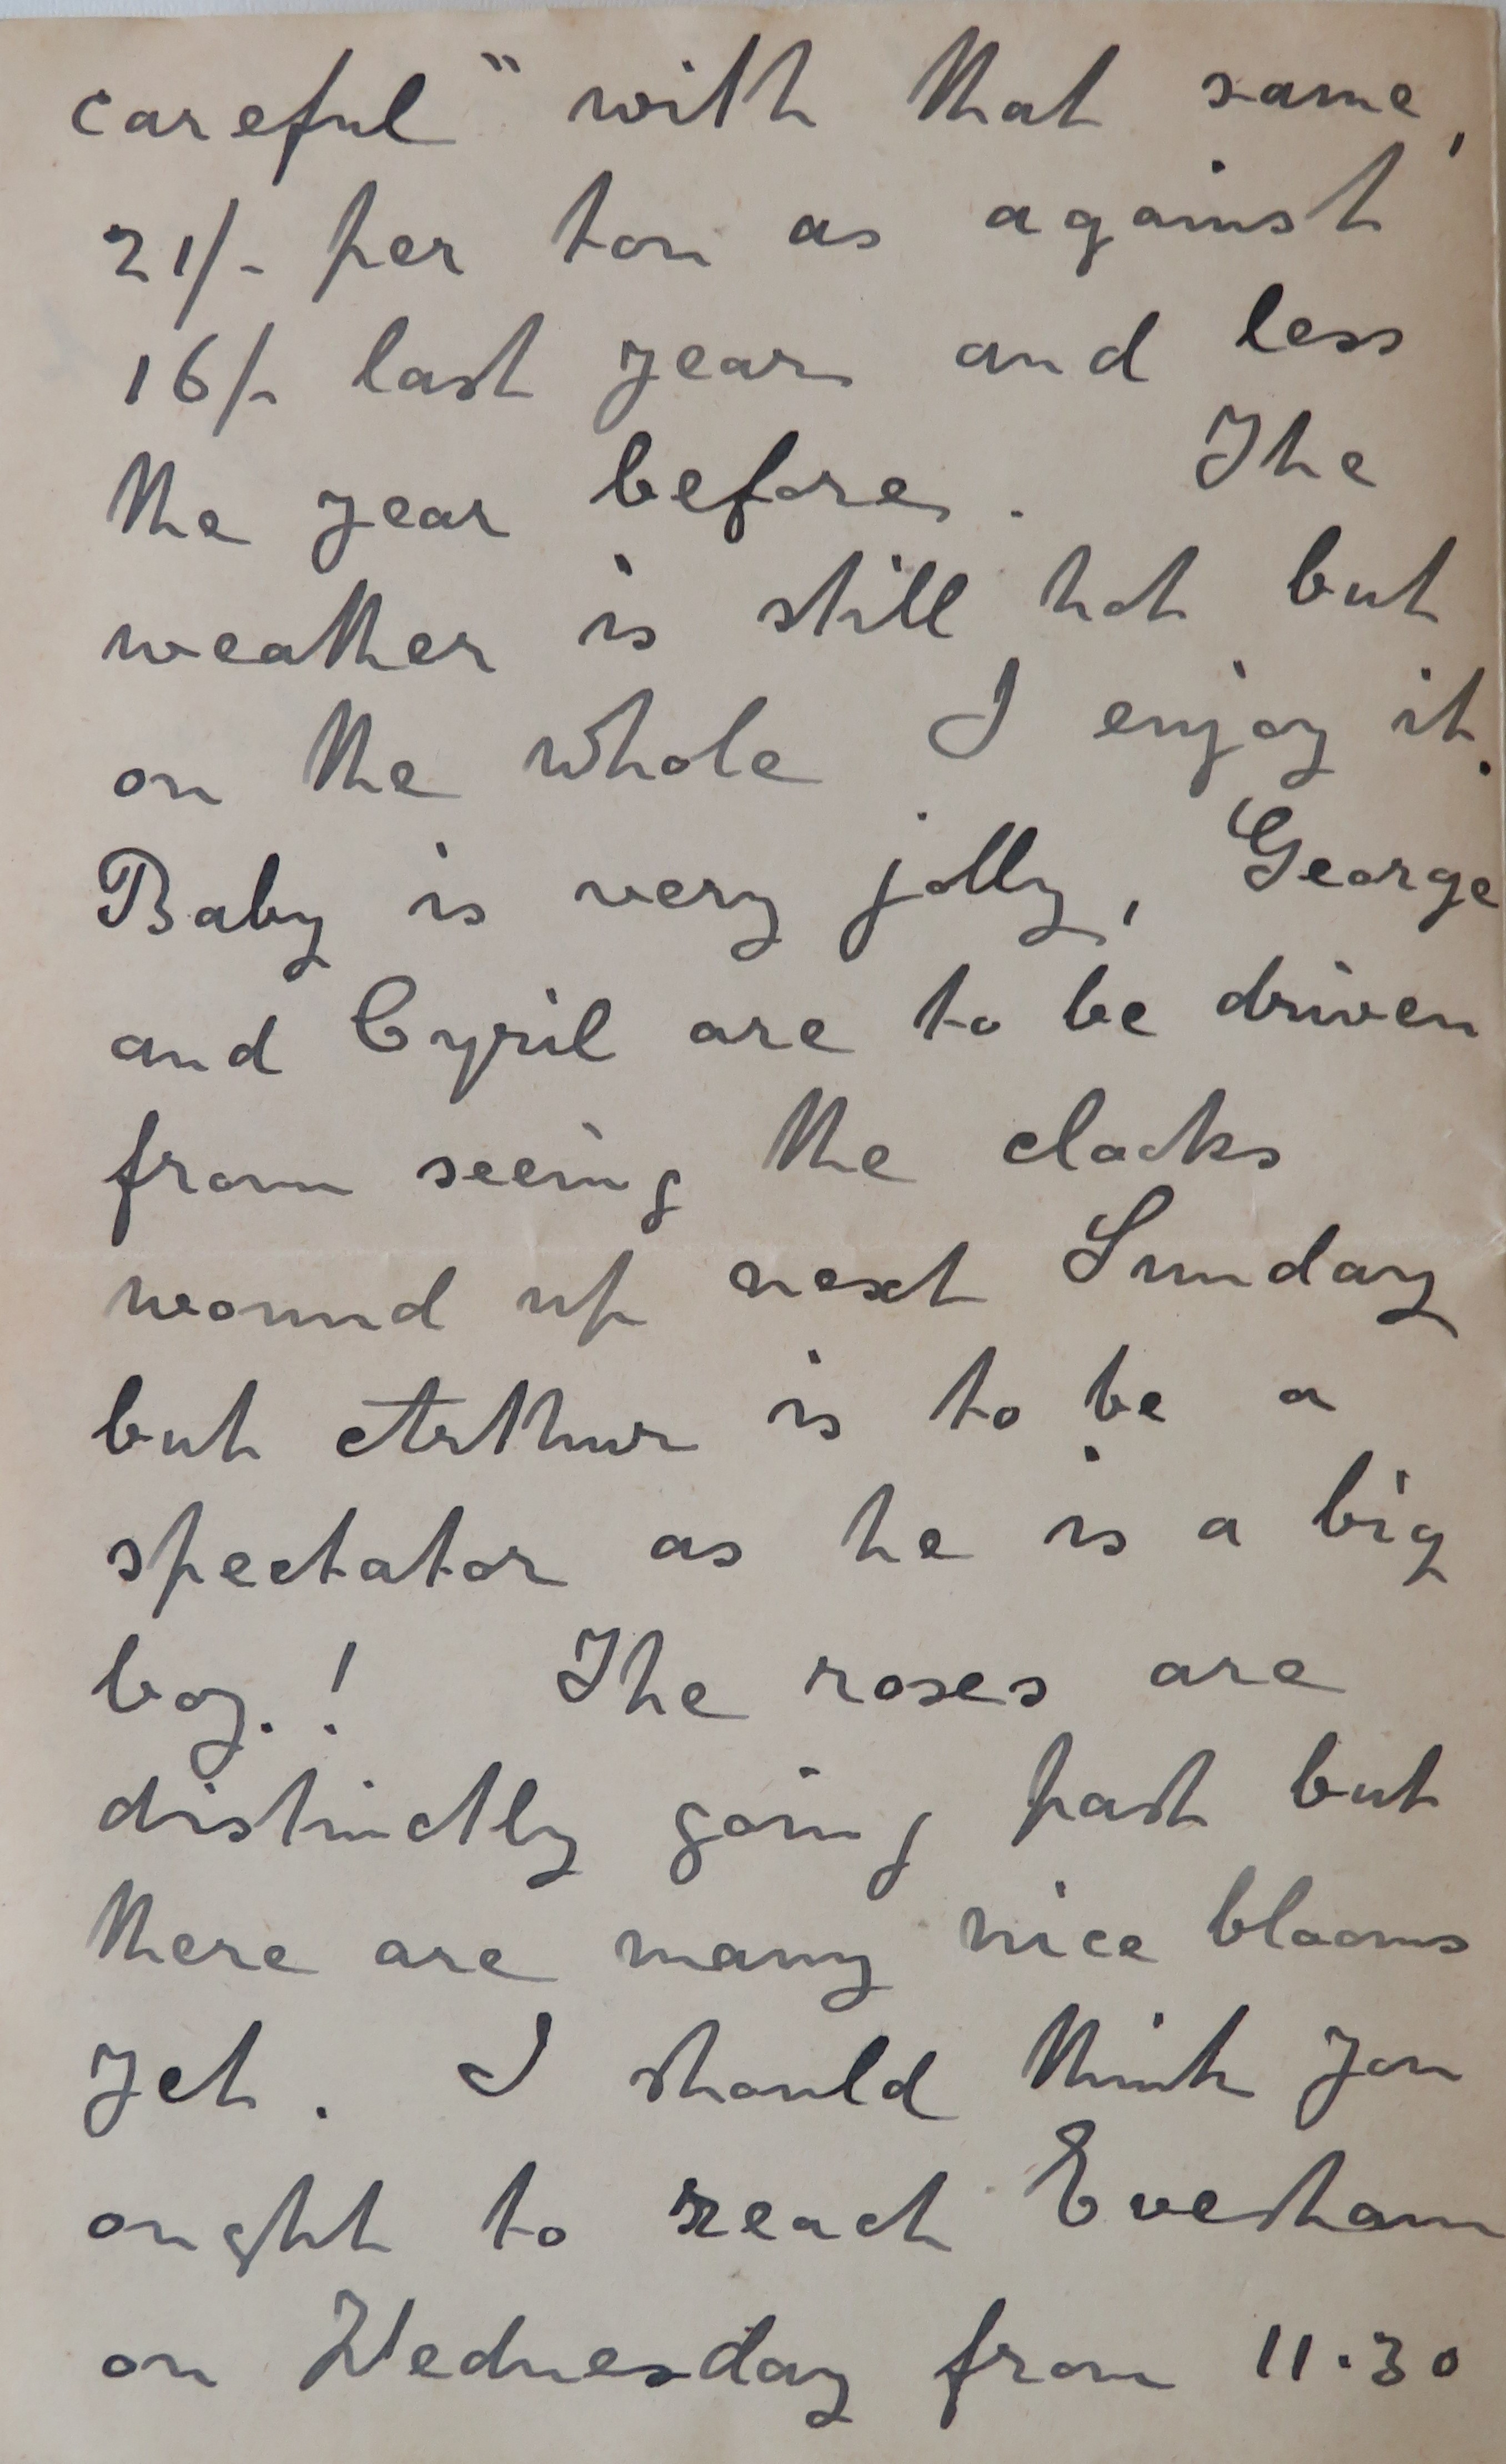 careful" with that same,
21/- per ton as against
16/- last year and less
the year before. The
weather is still hot but
on the whole I enjoy it.
Baby is very jolly, George
and Cyril are to be driven
from seeing the clocks
wound up next Sunday
but Arthur is to be a
spectator as he is a big
boy.! The roses are
distinctly going past but
there are many nice blooms
yet. I should think you
ought to reach Evesham
on Wednesday from 11.30